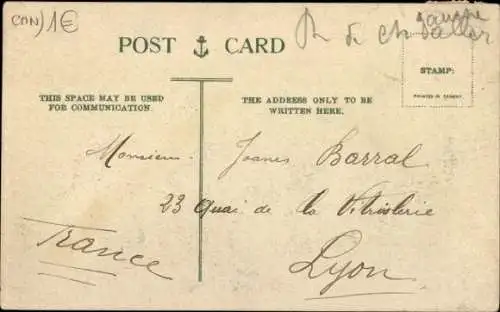 CAN) 1€
POST CARD
STAMP:
PRINTED IN GERMANY.
THIS SPACE MAY BE USED
FOR COMMUNICATION.
THE ADDRESS ONLY TO BE
WRITTEN HERE.
Monsieur Joanes Barral
23 Quai de la Vitriolerie
France
Lyon